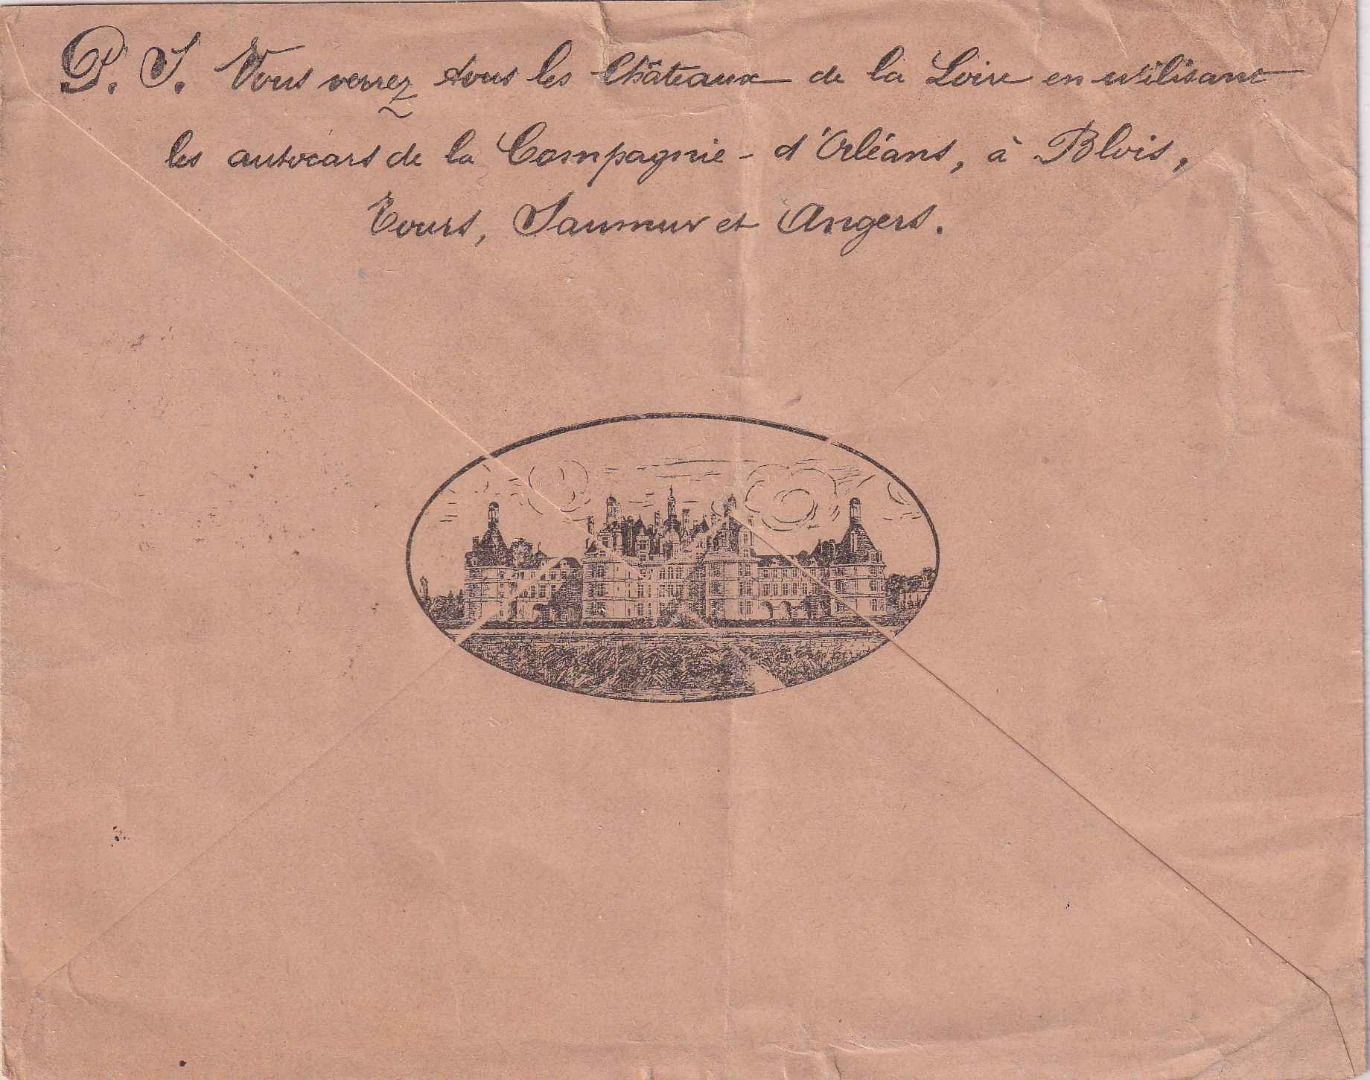 P. S. Vous verrez tous les Châteaux de la Loire en utilisant
les autocars de la Compagnie - d'Orléans, à Blois,
Tours, Saumur et Angers.